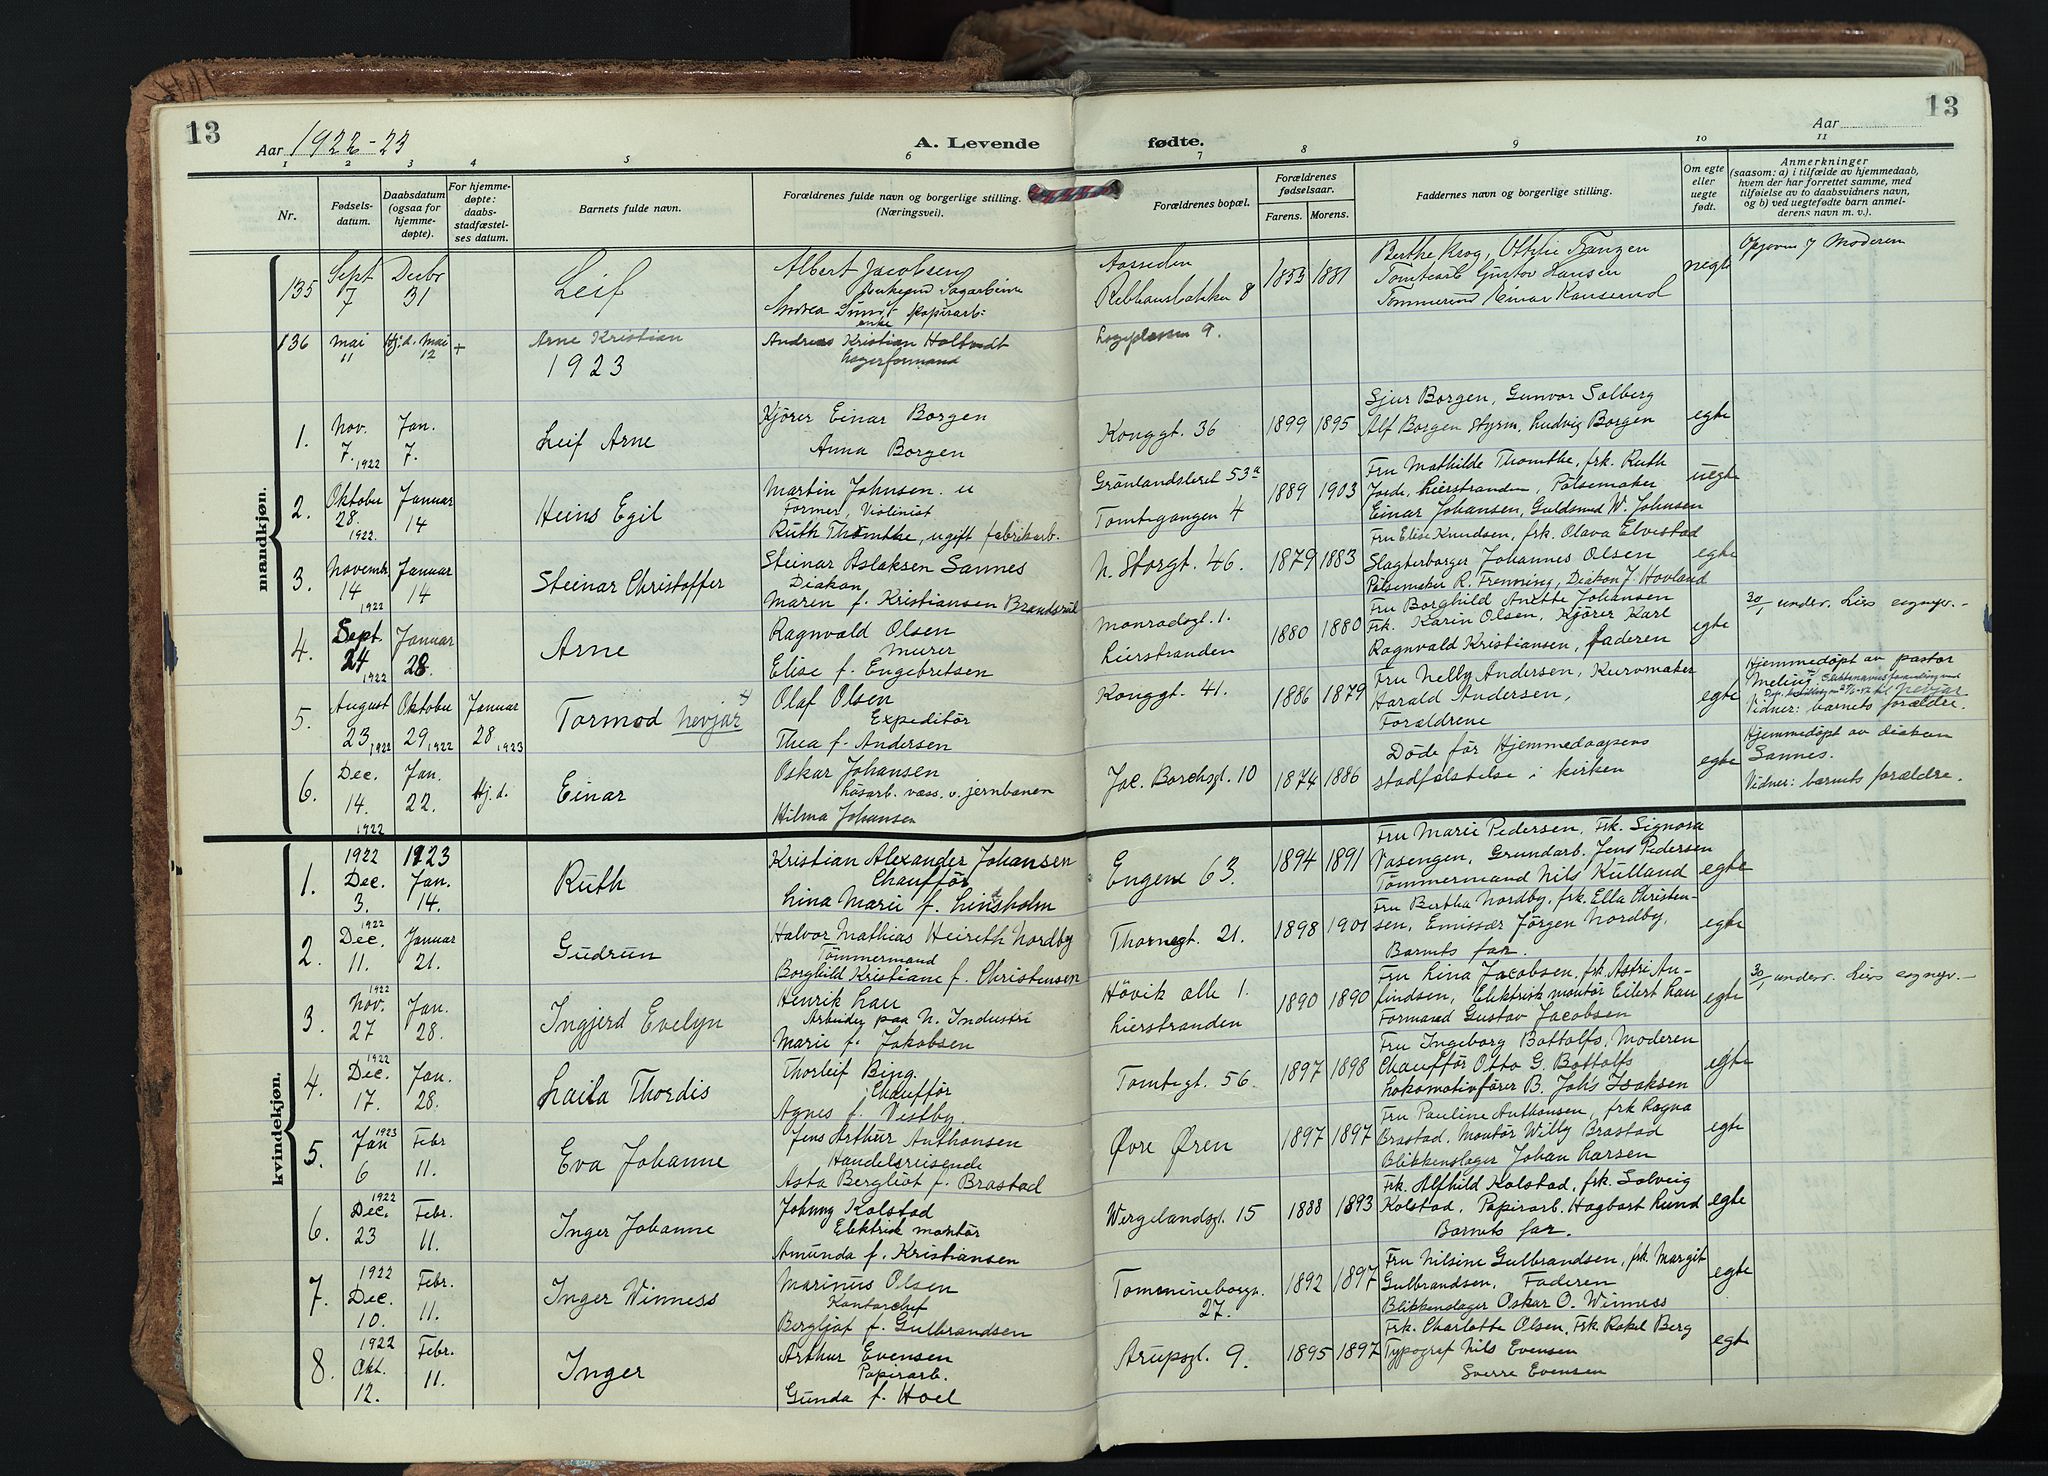 13
Aar 1922-23
A. Levende
fødte.
Aar
13
1 2 3 4 5 6 7 8 9 10 11
Nr.
Fødsels-
datum.
Daabsdatum
(ogsaa for
hjemme-
døpte).
For hjemme-
døpte:
daabs-
stadfæstel-
ses datum.
Barnets fulde navn.
Forældrenes fulde navn og borgerlige stilling.
(Næringsvei).
Forældrenes bopæl.
Forældrenes
fødselsaar.
Farens. Morens.
Faddernes navn og borgerlige stilling.
Om egte
eller
uegte
født.
Anmerkninger
(saasom: a) i tilfælde av hjemmedaab,
hvem der har forrettet samme, med
tilføielse av to daabsvidners navn,
og b) ved uegtefødte barn anmel-
derens navn m. v.).
mandkjøn.
135
Sept
7
Decbr
31
Leif
Albert Jacobsen
Andrea papirarb.
enke
Aasseden
8
1853 1881
Berthe Krog, Othilie Franzen
Gustav Hansen
Einar
uegte
Moderen
136
Mai
11
Hj.d. Mai
12
+
Arne Kristian
Andreas Kristian Holtvedt
Lagerformand
9.
1923
1.
Nov.
7.
1922
Jan.
7.
Leif Arne
Kjører Einar Borgen
Anna Borgen
Konggt. 36
1899 1895
Sjur Borgen, Gunvor Solberg
Alf Borgen Styrm. Ludvig Borgen
egte
2.
Oktober
28.
1922.
Januar
14
Heins Egil
Martin Johnsen. u
Former, Violinist
Ruth Thomthe, ugift fabrikarb.
Grönlandsleret 53a
Tomtegangen 4
1889 1903
Fru Mathilde Thomthe, frk. Ruth
Lierstranden, Pølsemaker
Einar Johansen, Guldsmed W. Johnsen
uegte
3.
Novembr
14
1922
Januar
14
Steinar Christoffer
Steinar Aslaksen Sannes
Diakon
Maren f. Kristiansen
N. Storgt. 46.
1879 1883
Fru Elise Knudsen, frk. Olava Elvestad
Slagterborger Johannes Olsen
Pølsemaker R. Frenning, Diakon J. Hovland
egte
4.
Sept.
24
1922
Januar
28.
Arne
Ragnvald Olsen
Murer
Elise f. Engebretsen
Monradsgt. 1.
Lierstranden
1880 1880
Fru Borghild Anette Johansen
Frk. Karin Olsen, Kjører Karl
Ragnvald Kristiansen, faderen
egte
30/1 underr. Liers sognepr.
5.
August
23
1922
Oktober
29
1922
Januar
28
1923
Tormod Nevjar
Olaf Olsen
Expeditör
Thea f. Andersen
Konggt. 41.
1886 1879
Fru Nelly Andersen, Kurvmaker
Harald Andersen,
Forældrene
egte
Hjemmedøpt av pastor
Meling.
Nevjar
Vidner: barnets forældre.
6.
Dec.
14.
1922
Jan.
22.
Hj.d.
Einar
Oskar Johansen
Løsarb. væss. v. jernbanen
Hilma Johansen
Jac. Borchsgt. 10
1874 1886
Døde før Hjemmedaapens
stadfæstelse i kirken
egte
Hjemmedøpt av diakon
Sannes.
Vidner: barnets forældre.
kvindekjøn.
1.
1922
Dec.
3.
1923
Jan.
14.
Ruth
Kristian Alexander Johansen
Chauffør
Lina Marie f. Lindsholm
Engene 63.
1894 1891
Fru Marie Pedersen, Frk. Signora
Vasengen, Grundarb. Jens Pedersen
Tømmermand Nils Kulland
egte
2.
1922
Dec.
11.
Januar
21.
Gudrun
Halvor Mathias Heireth Nordby
Tømmermand
Borghild Kristiane f. Christensen
Thornegt. 21.
1898 1901
Fru Bertha Nordby, frk. Ella Christen-
sen, Emissær Jørgen Nordby,
Barnets far.
egte
3.
1922
Nov.
27
Jan.
28.
Ingjerd Evelyn
Henrik Lau
Arbeider paa N. Industri
Marie f. Jakobsen
Høvik alle 1.
Lierstranden
1890 1890
Fru Lina Jacobsen, frk Astri An-
findsen, Elektrisk montør Eilert Lau
Formand Gustav Jacobsen
egte
30/1 underr. Liers sognepr.
4.
1922
Dec.
17.
Jan.
28.
Laila Thordis
Thorleif Bing.
Chauffør
Agnes f. Vestby
Tomtegt. 56.
1897 1898
Fru Ingeborg Bottolfs, Moderen
Chauffør Otto G. Bottolfs
Lokomotivfører B. Johs Isaksen
egte
5.
1923
Jan
6
Febr
11.
Eva Johanne
Jens Arthur Anthonsen
Handelsreisende
Asta Bergliot f. Brastad
Øvre Øren
1897 1897
Fru Pauline Anthonsen, frk Ragna
Brastad. Montør Willy Brastad
Blikkenslager Johan Larsen
egte
6.
1922
Dec.
23
Febr.
11.
Inger Johanne
Johnny Kolstad
Elektrisk montør
Amunda f. Kristiansen
Wergelandsgt. 15
1888 1893
Frk. Alfhild Kolstad, frk. Solveig
Kolstad, Papirarb. Hagbart Rund
Barnets far.
egte
7.
1922
Dec.
10.
Febr.
11.
Inger Winness
Marinus Olsen
Kontorchef
Bergljot f. Gulbrandsen
27.
1892 1897
Fru Nilsine Gulbrandsen, frk. Margit
Gulbrandsen, Faderen
Blikkenslager Oskar O. Winness
egte
8.
1922
Okt.
12.
Febr.
11.
Inger
Arthur Evensen
Papirarb.
Gunda f. Hoel
Arupsgt. 9.
1895 1897
Frk. Charlotte Olsen, Frk Rakel Berg
Typograf Nils Evensen
Sverre Evensen
egte